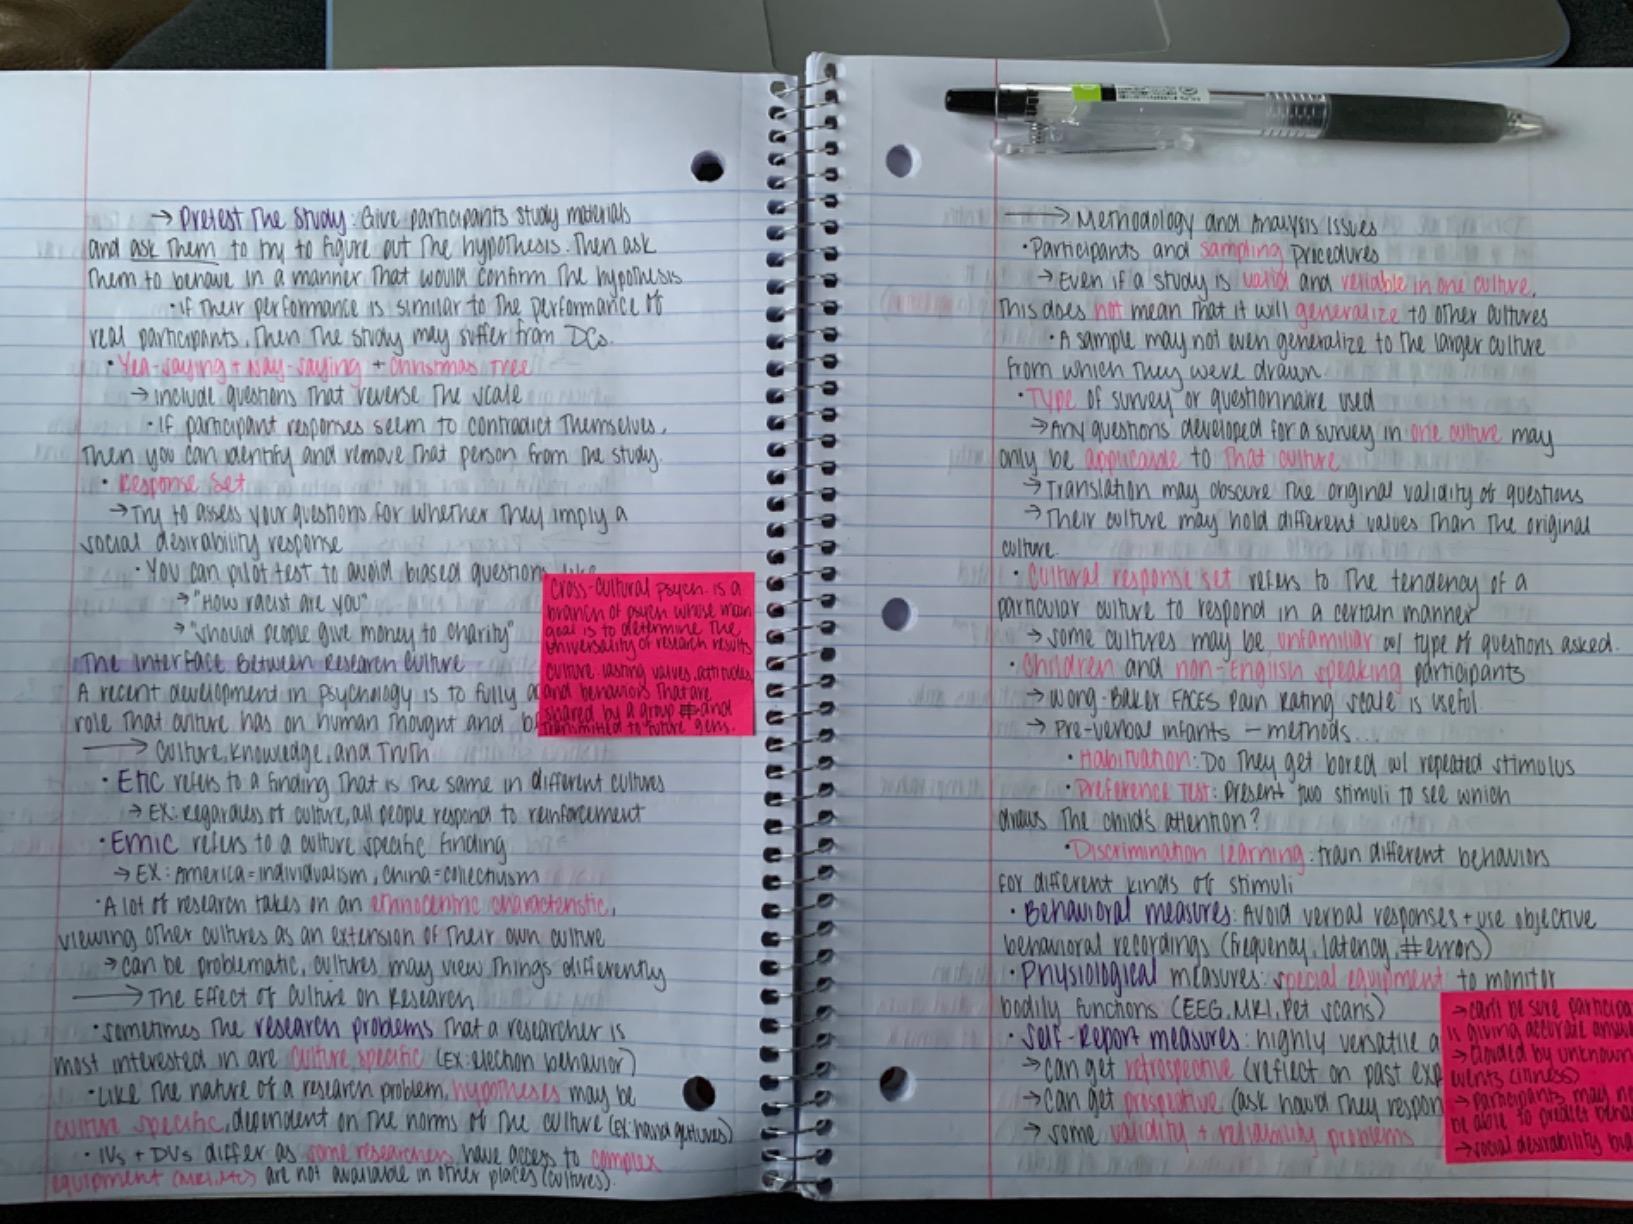 → Pretest The Study: Give participants study materials
and ask Them to try to figure out The hypothesis. Then ask
Them to behave in a manner That would confirm The hypothesis
• if Their performance is similar to The performance of
real participants, Then The study may suffer from DCs.
• Yea-saying + Nay-saying + Christmas Tree
→ include questions That reverse The scale
• If participant responses seem to contradict Themselves,
Then you can identify and remove That person from The study.
• Response Set
→ Try to assess your questions for whether They imply a
social desirability response
• You can pilot test to avoid biased questions like
→ "How racist are you"
→ "should people give money to charity"
The Interface Between Research Culture
A recent development in psychology is to fully a
role That culture has on human Thought and b
→ Culture, Knowledge, and Truth
• Etic refers to a finding That is The same in different cultures
→ EX: Regardless of culture, all people respond to reinforcement
• Emic refers to a culture specific finding
→ EX: America = individualism, China = collectivism
• A lot of research takes on an ethnocentric characteristic,
viewing other cultures as an extension of Their own culture
→ can be problematic, cultures may view Things differently
→ The Effect of Culture on Research
• sometimes The research problems That a researcher is
most interested in are culture specific (EX: election behavior)
• Like The nature of a research problem, hypotheses may be
culture specific, dependent on The norms of The culture (EX: hand gestures)
• IVs + DVs differ as some researchers have access to complex
equipment (MRI, etc) are not available in other places (cultures).
Cross-cultural psych. is a
branch of psych whose main
goal is to determine The
universality of research results
culture: lasting values, attitudes,
and behaviors That are
shared by a group and
transmitted to future gens.
→ Methodology and Analysis Issues
• Participants and sampling Procedures
→ Even if a study is valid and reliable in one culture,
This does not mean That it will generalize to other cultures
• A sample may not even generalize to The larger culture
from which They were drawn
• Type of survey or questionnaire used
→ Any questions developed for a survey in one culture may
only be applicable to That culture
→ Translation may obscure The original validity of questions
→ Their culture may hold different values Than The original
culture.
• Cultural response set refers to The tendency of a
particular culture to respond in a certain manner
→ some cultures may be unfamiliar w/ type of questions asked.
• Children and non-English speaking participants
→ Wong-Baker FACES Pain Rating scale is useful.
→ Pre-verbal infants – methods...
• Habituation: Do They get bored w/ repeated stimulus
• Preference Test: Present two stimuli to see which
draws The child's attention?
• Discrimination learning: train different behaviors
for different kinds of stimuli
• Behavioral measures: Avoid verbal responses + use objective
behavioral recordings (frequency, latency, # errors)
• Physiological measures: special equipment to monitor
bodily functions (EEG, MRI, Pet scans)
• Self-Report measures: highly versatile a
→ can get retrospective (reflect on past exp
→ can get prospective (ask how'd They respon
→ some validity + reliability problems
→ can't be sure participa
is giving accurate answ
→ clouded by unknown
vents (illness)
→ participants may no
be able to predict beha
→ social desirability bia